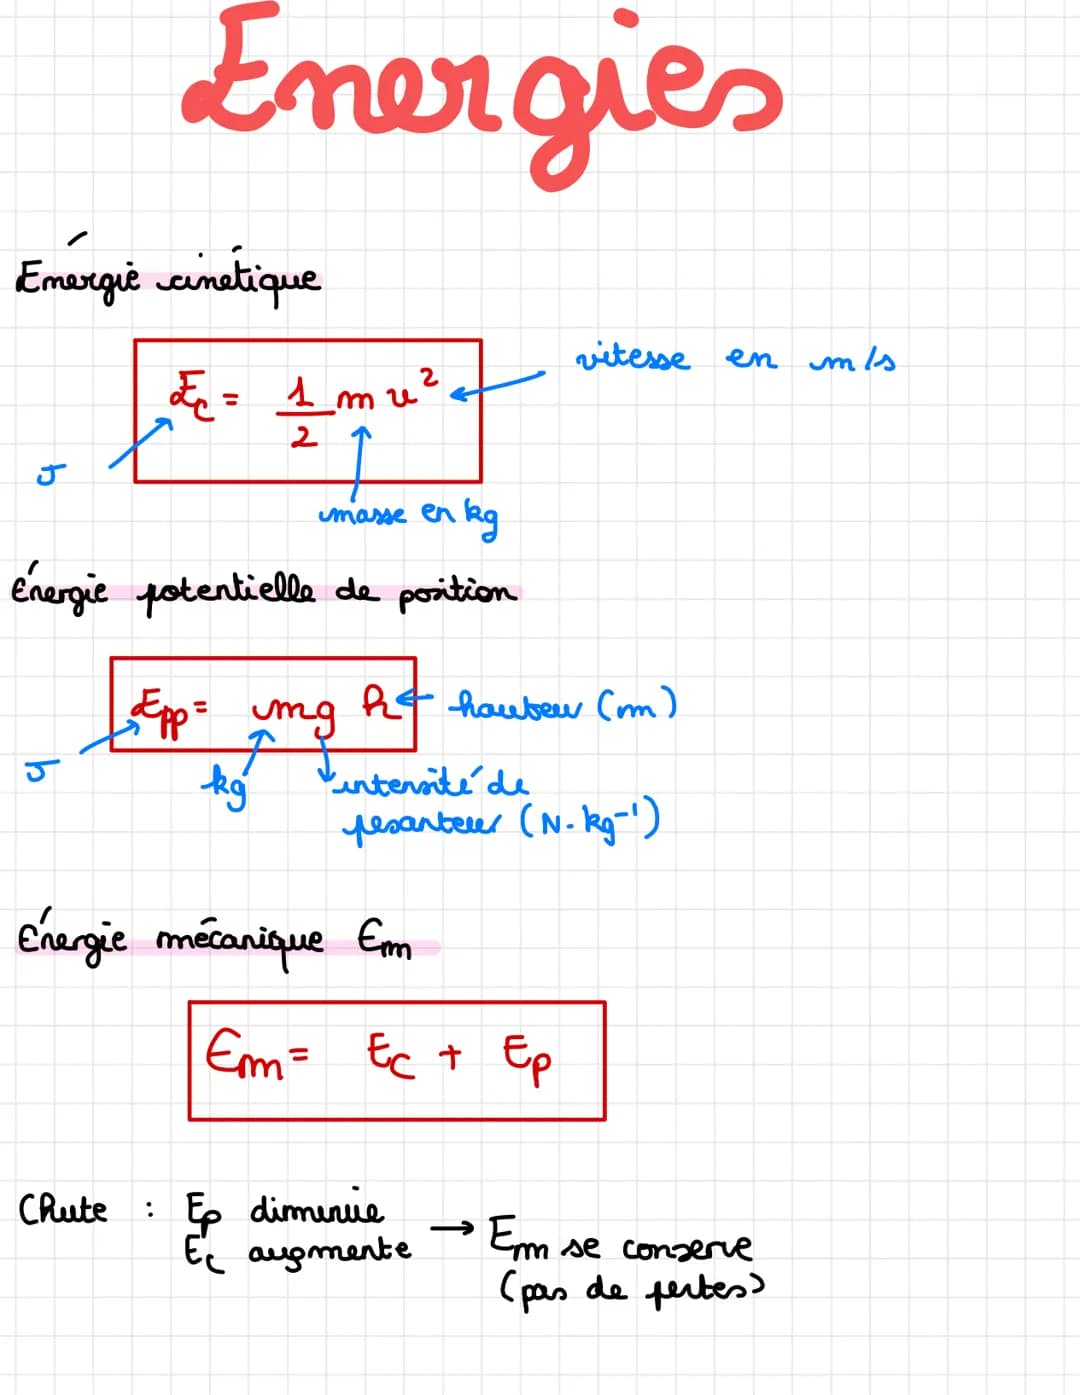 Energies
Énergie cinétique
Ec = 1/2 m v²
vitesse en m/s
J
masse en kg
Énergie potentielle de position
Epp = mg h
hauteur (m)
J
kg
intensité de
pesanteur (N.kg⁻¹)
Énergie mécanique Em
Em = Ec + Ep
Chute : Ep diminue
Ec augmente → Em se conserve
(pas de pertes)